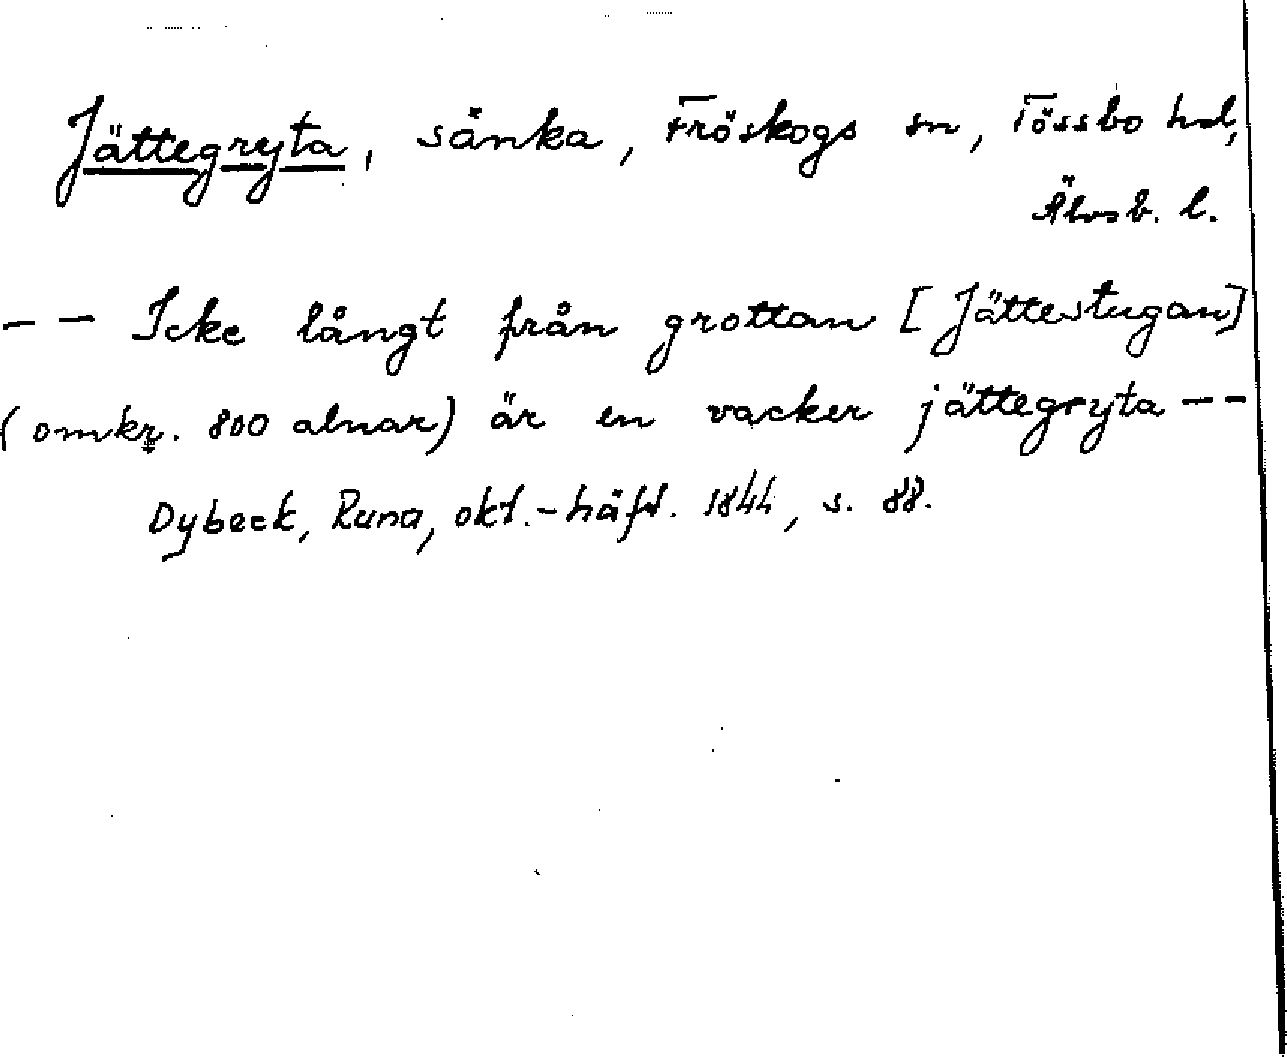 Jättegryta, sänka, Fröskogs sn, Tössbo hd,
Älvsb. l.
-- Icke långt från grottan [Jättestugan]
(omkr. 800 alnar) är en vacker jättegryta --
Dybeck, Runa, okt.-häft. 1844, s. 88.